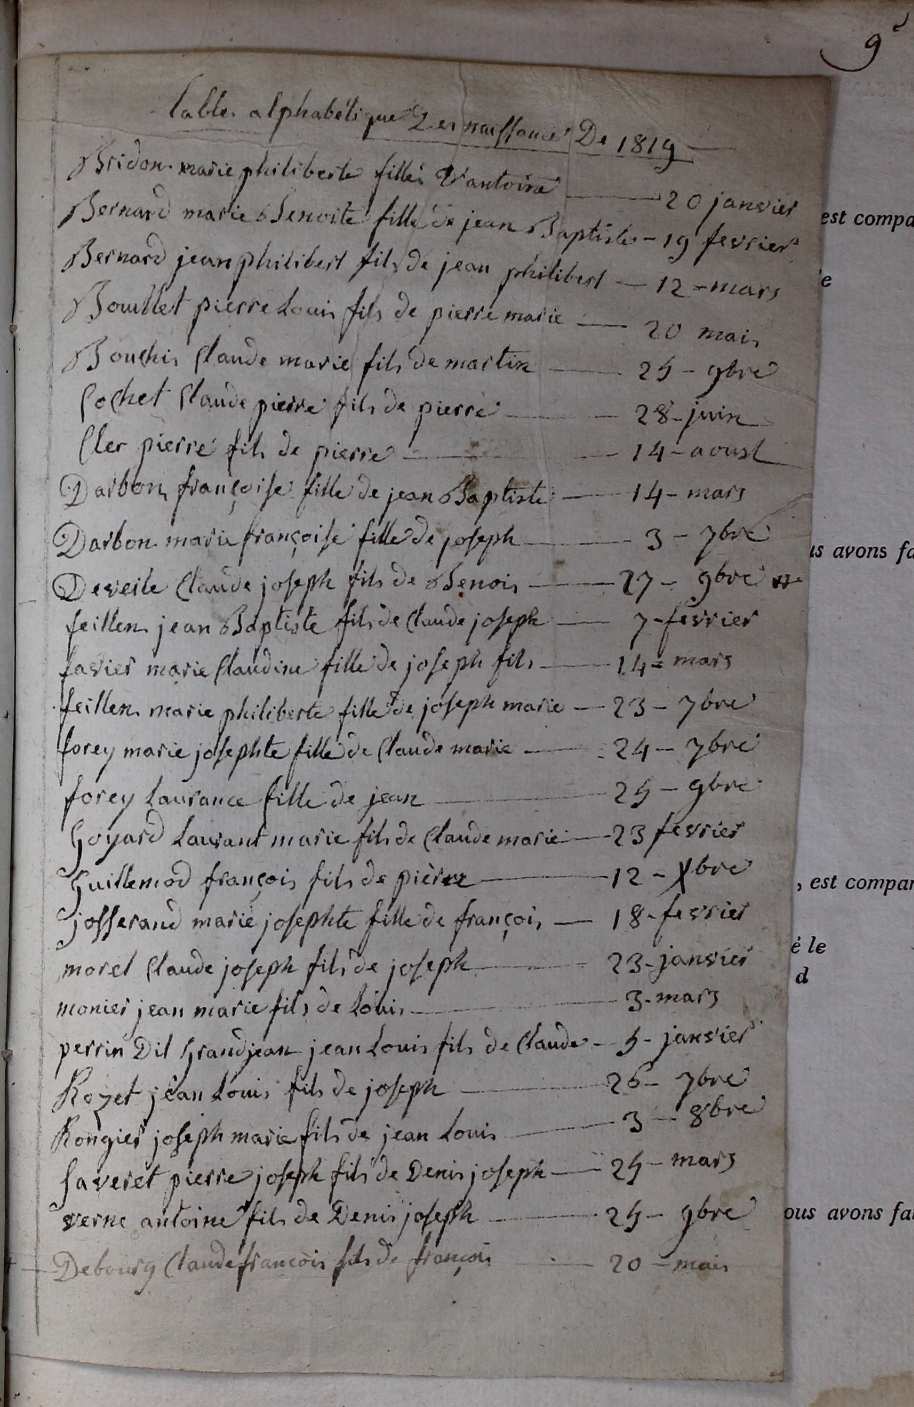 9
Table alphabétique Des naissances De 1819
Bridon marie philiberte fille d'antoine — 20 janvier
Bernard marie Benoite fille de jean Baptiste — 19 fevrier
Bernard jean philibert fils de jean philibert — 12 - mars
Bouillet pierre Louis fils de pierre marie — 20 mais
Bouchis Claude marie fils de martin — 25 - 9bre
Cochet Claude pierre fils de pierre — 28 - juin
Cler pierre fils de pierre — 14 - aoust
Darbon françoise fille de jean Baptiste — 14 - mars
Darbon marie françoise fille de joseph — 3 - 7bre
Deveile Claude joseph fils de Benois — 27 - 9bre
feillen jean Baptiste fils de Claude joseph — 7 - fevrier
favier marie Claudine fille de joseph fils — 14 - mars
feillen marie philiberte fille de joseph marie — 23 - 7bre
forey marie josephte fille de Claude marie — 24 - 7bre
forey Laurance fille de jean — 25 - 9bre
Goyard Laurant marie fils de Claude marie — 23 fevrier
Guillemod françois fils de pierre — 12 - Xbre
josserand marie josephte fille de françois — 18 - fevrier
morel Claude joseph fils de joseph — 23 - janvier
monier jean marie fils de Louis — 3 - mars
perrin Dit Grandjean jean Louis fils de Claude - 5 - janvier
Rozet jean Louis fils de joseph — 26 - 7bre
Rongier joseph marie fils de jean Louis — 3 - 8bre
Saveret pierre joseph fils de Denis joseph — 25 - mars
verne antoine fils de Denis joseph — 25 - 9bre
Debourg Claude françois fils de françois — 20 - mais
est compa
e
us avons fa
, est compar
é le
d
ous avons fai